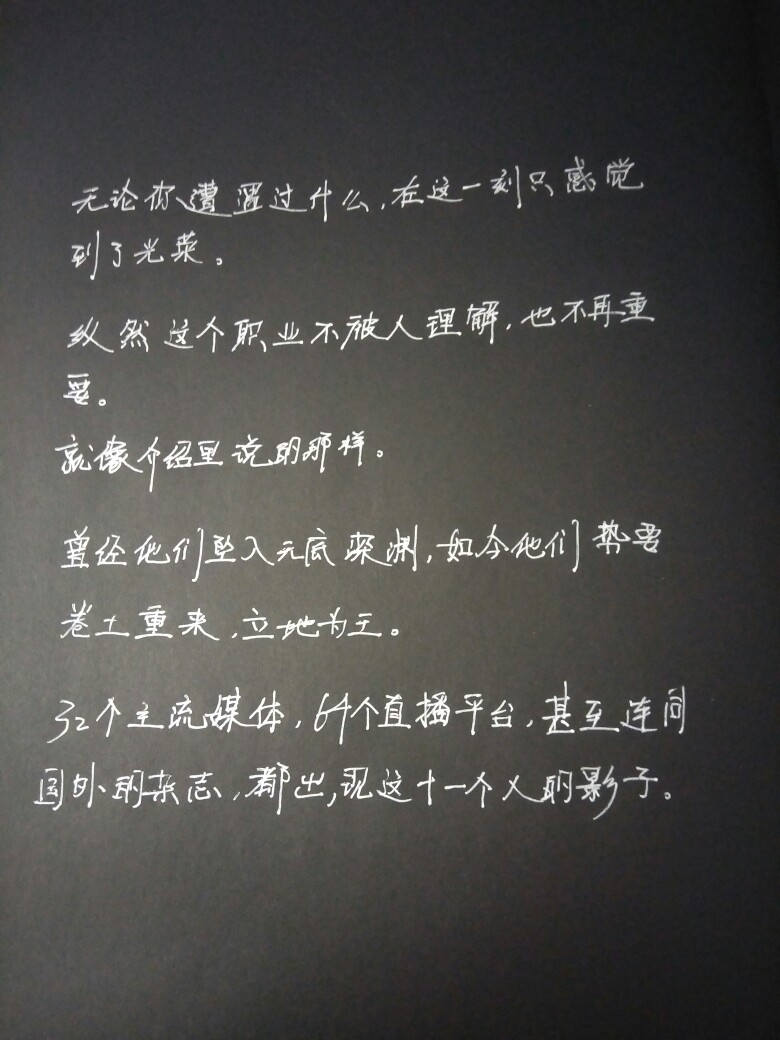 无论你遭罹过什么,在这一刻只感觉
到了光荣。
纵然这个职业不被人理解,也不再重
要。
就像介绍里说的那样。
曾经他们坠入无底深渊,如今他们势要
卷土重来,立地为王。
32个主流媒体,64个直播平台,甚至连同
国外的杂志,都出,现这十一个人的影子。